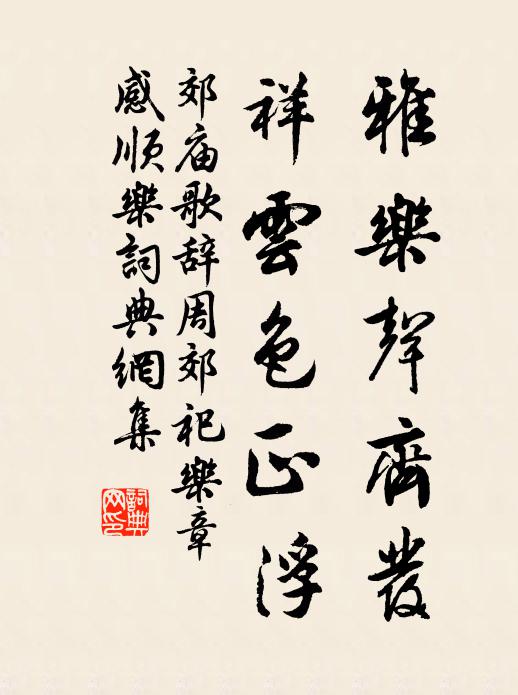 雅樂聲齊發
祥雲色正浮
郊庙歌辞周郊祀樂章
感順樂詞典網集
詞典
网印